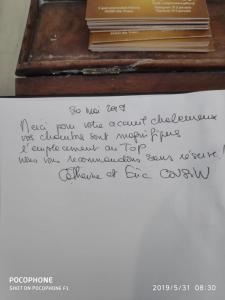 30 mai 2019
Merci pour votre accueil chaleureux
vos chambres sont magnifiques
l'emplacement au TOP
nous vous recommandons sans réserve!
Catherine et Eric COUSIN
POCOPHONE
SHOT ON POCOPHONE F1
2019/5/31 08:30